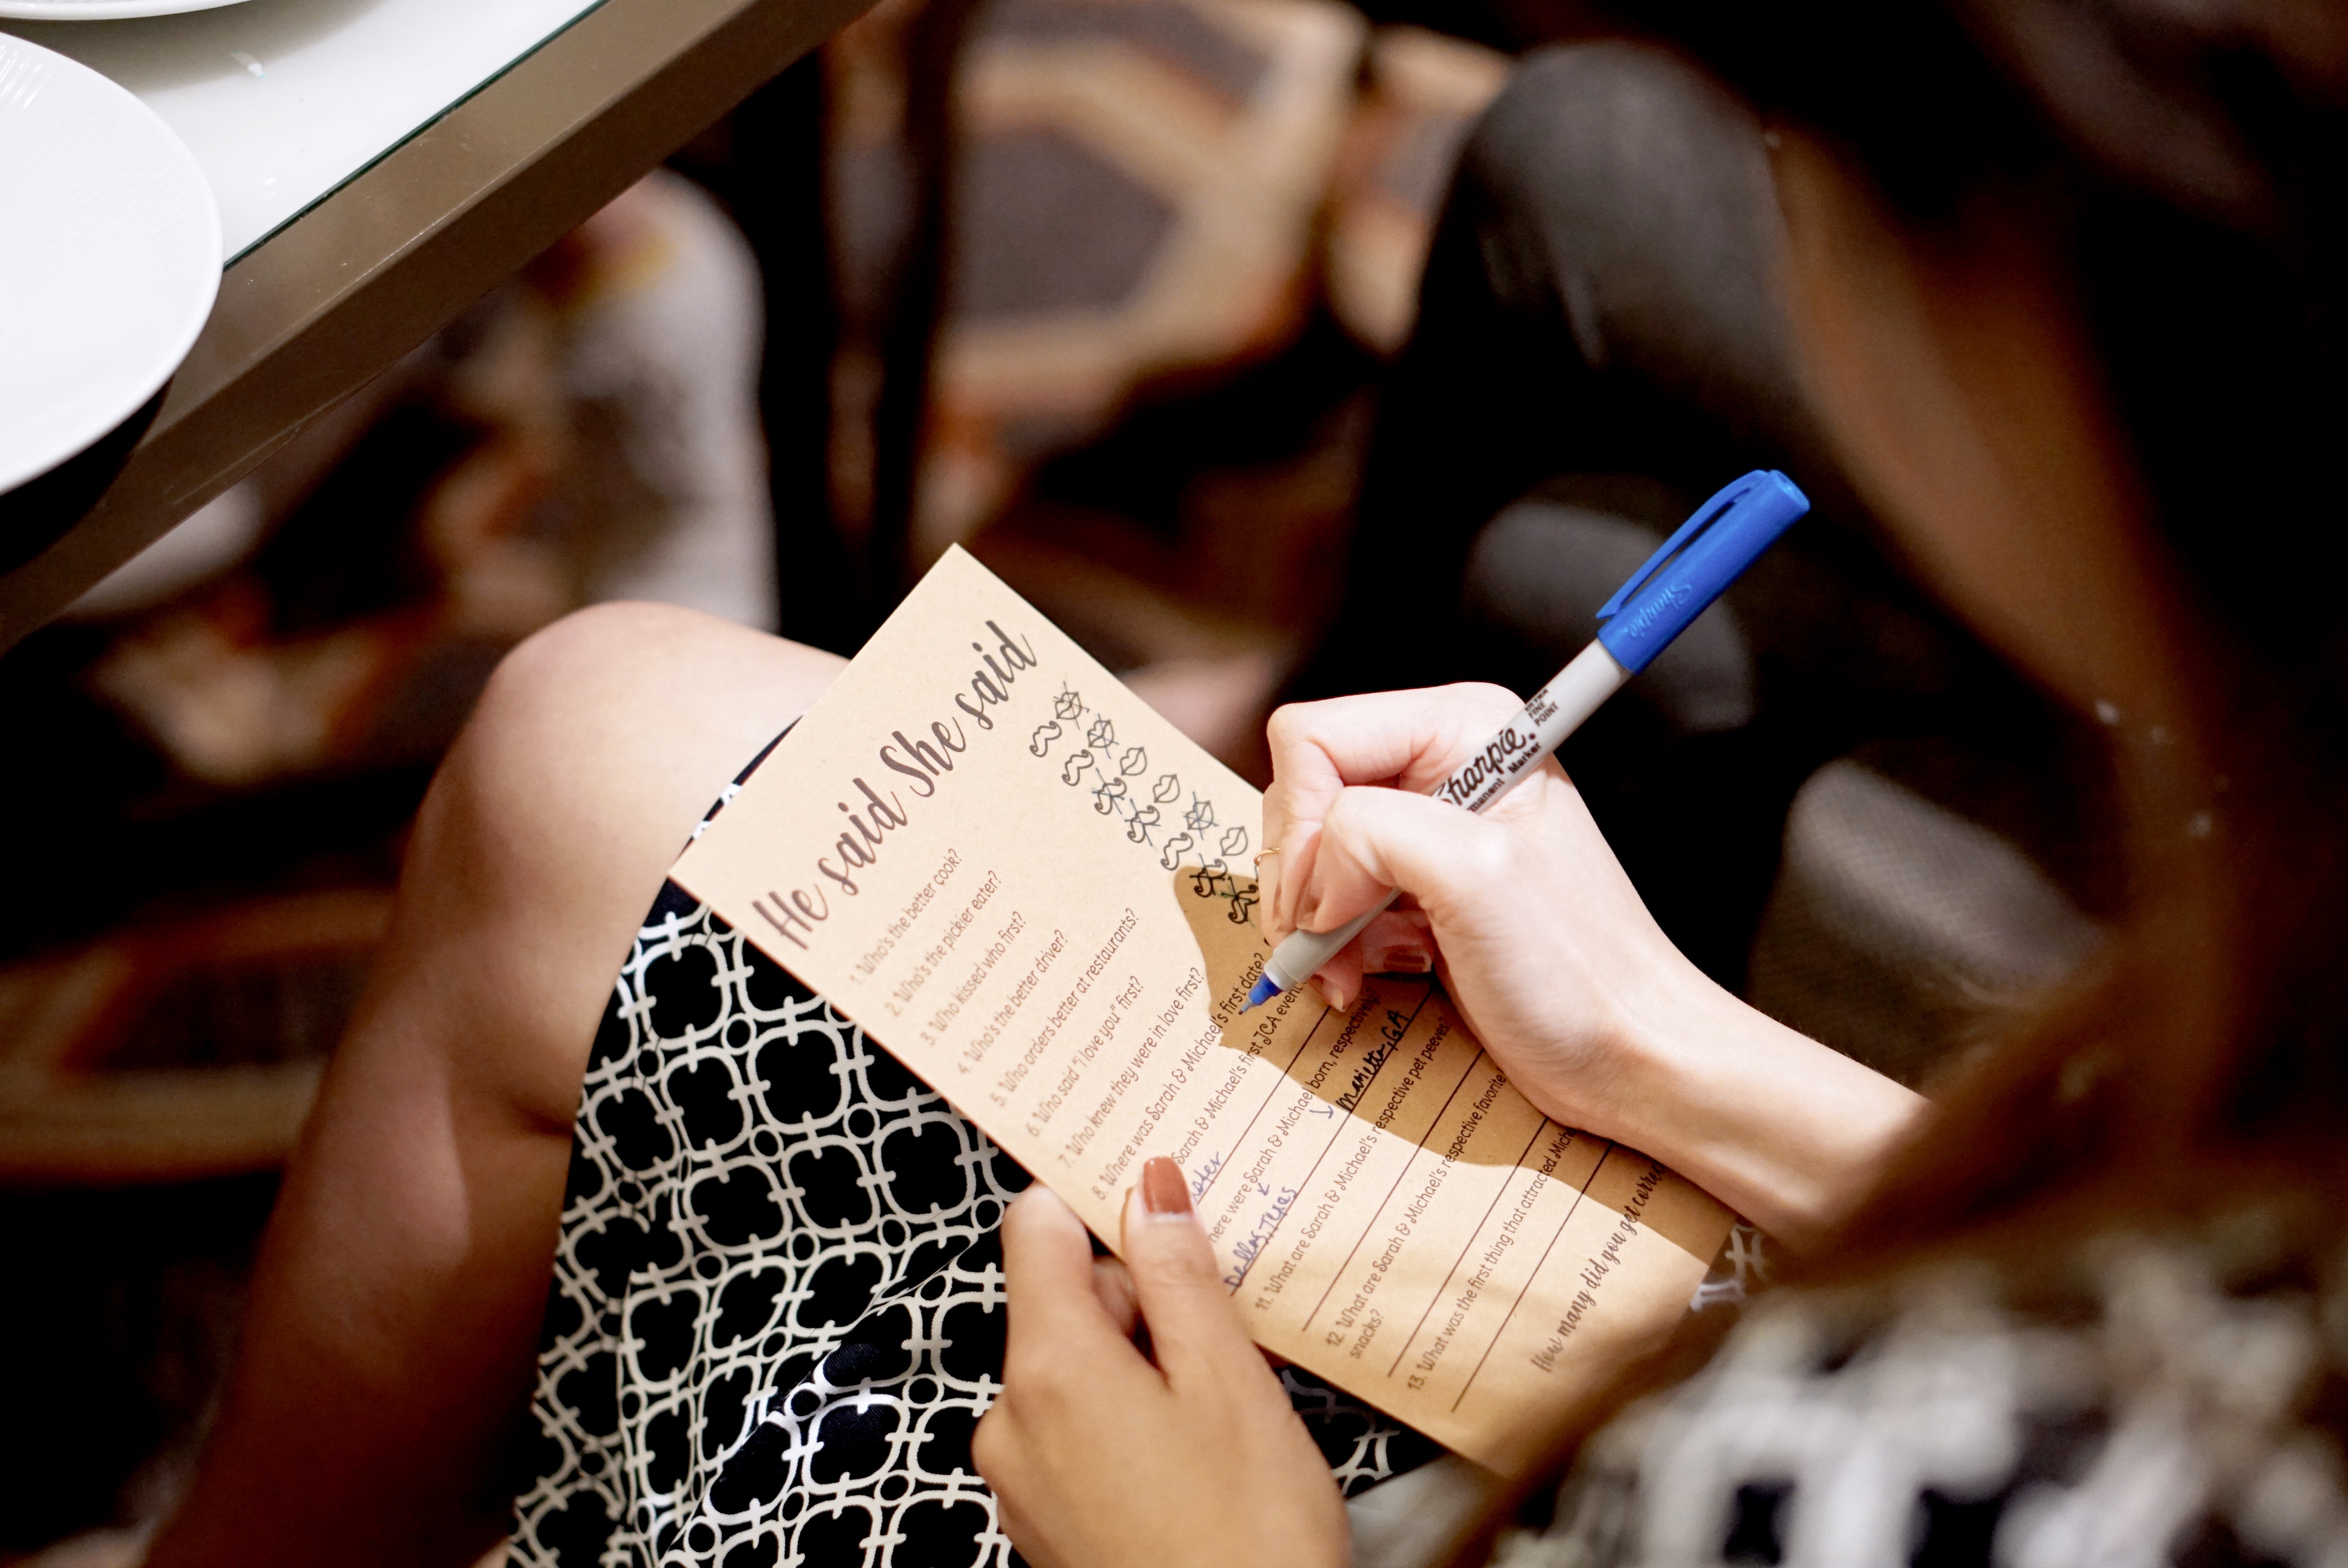 He said She said
1. Who's the better cook?
2. Who's the pickier eater?
3. Who kissed who first?
4. Who's the better driver?
5. Who orders better at restaurants?
6. Who said "I love you" first?
7. Who knew they were in love first?
8. Where was Sarah & Michael's first date?
Sarah & Michael's first JCA
were Sarah & Michael born, respectively
Dallas, Texas
Marietta, GA
11. What are Sarah & Michael's respective pet peeves?
12. What are Sarah & Michael's respective favorite
snacks?
13. What was the first thing that attracted
How many did you get
Sharpie
Sharpie
Marker
ULTRA
FINE
POINT